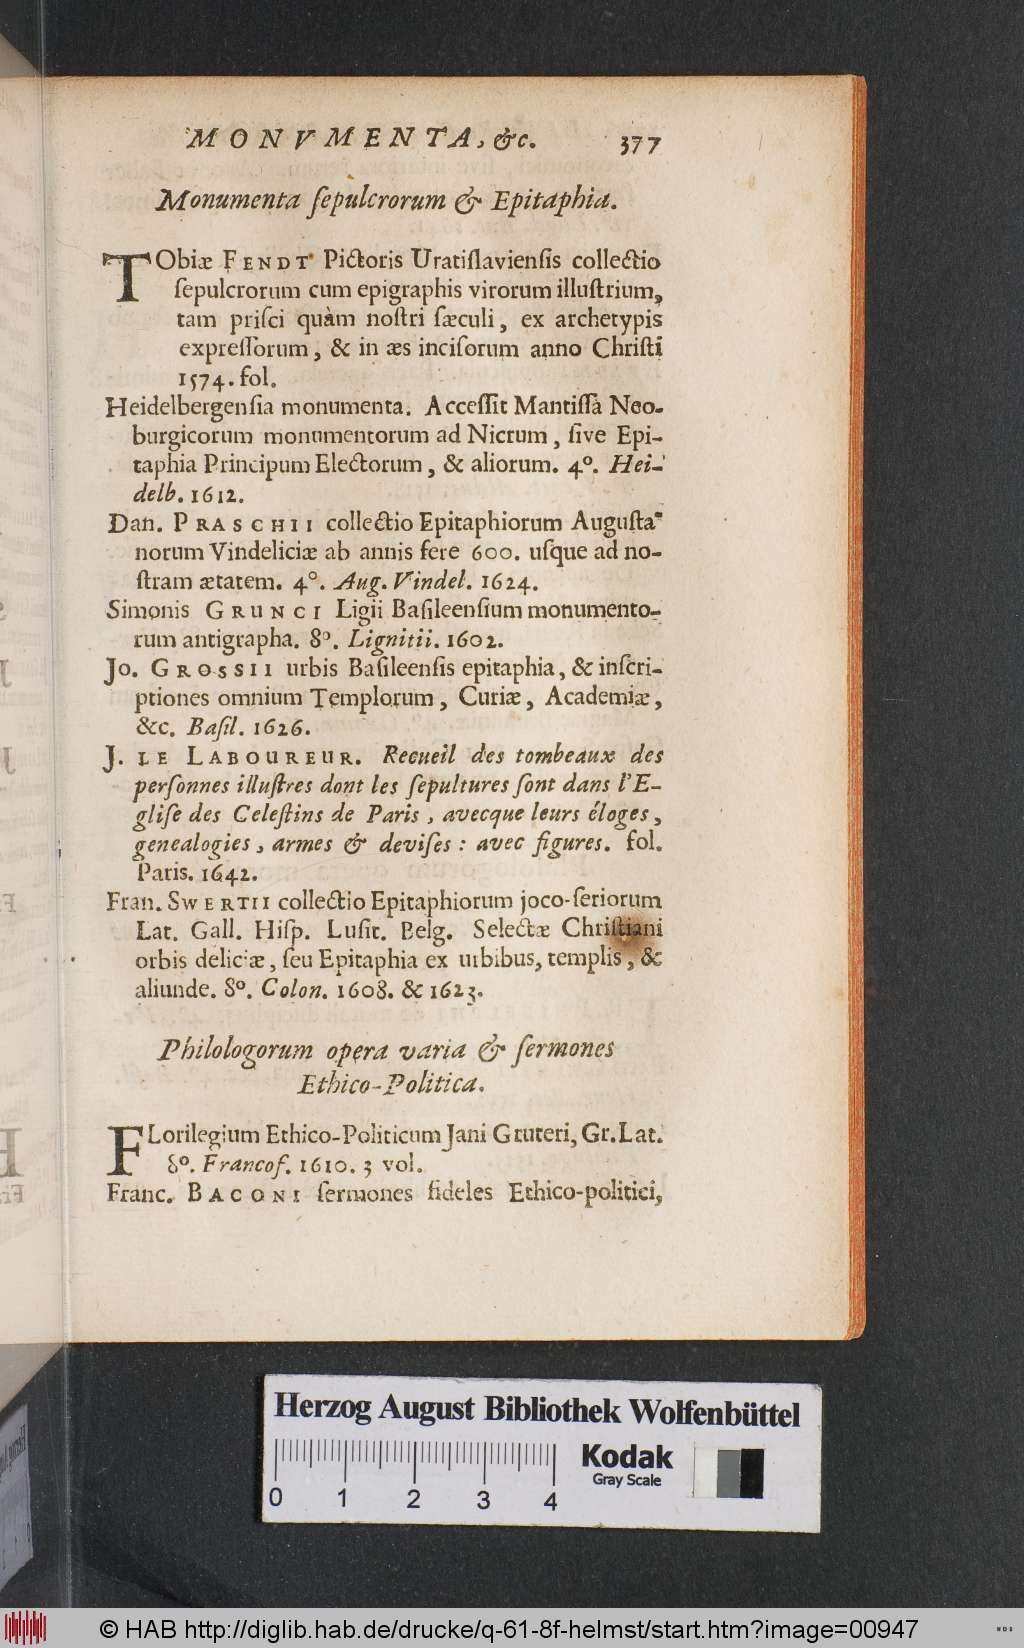 MONVMENTA, &c. 377
Monumenta ſepulcrorum & Epitaphia.
TObiæ FENDT Pictoris Uratiſlavienſis collectio
ſepulcrorum cum epigraphis virorum illuſtrium,
tam priſci quàm noſtri ſæculi, ex archetypis
expreſſorum, & in æs inciſorum anno Chriſti
1574. fol.
Heidelbergenſia monumenta. Acceſſit Mantiſſa Neo-
burgicorum monumentorum ad Nicrum, ſive Epi-
taphia Principum Electorum, & aliorum. 4°. Hei-
delb. 1612.
Dan. PRASCHII collectio Epitaphiorum Auguſta-
norum Vindeliciæ ab annis fere 600. uſque ad no-
ſtram ætatem. 4°. Aug. Vindel. 1624.
Simonis GRUNCI Ligii Baſileenſium monumento-
rum antigrapha. 8°. Lignitii. 1602.
Jo. GROSSII urbis Baſileenſis epitaphia, & inſcri-
ptiones omnium Templorum, Curiæ, Academiæ,
&c. Baſil. 1626.
J. LE LABOUREUR. Recueil des tombeaux des
perſonnes illuſtres dont les ſepultures ſont dans l'E-
gliſe des Celeſtins de Paris, avecque leurs éloges,
genealogies, armes & deviſes: avec figures. fol.
Paris. 1642.
Fran. SWERTII collectio Epitaphiorum joco-ſeriorum
Lat. Gall. Hiſp. Luſit. Belg. Selectæ Chriſtiani
orbis deliciæ, ſeu Epitaphia ex urbibus, templis, &
aliunde. 8°. Colon. 1608. & 1623.
Philologorum opera varia & ſermones
Ethico-Politica.
FLorilegium Ethico-Politicum Jani Gruteri, Gr. Lat.
8°. Francof. 1610. 3 vol.
Franc. BACONI ſermones fideles Ethico-politici,
Herzog August Bibliothek Wolfenbüttel
Kodak
Gray Scale
0 1 2 3 4
© HAB http://diglib.hab.de/drucke/q-61-8f-helmst/start.htm?image=00947